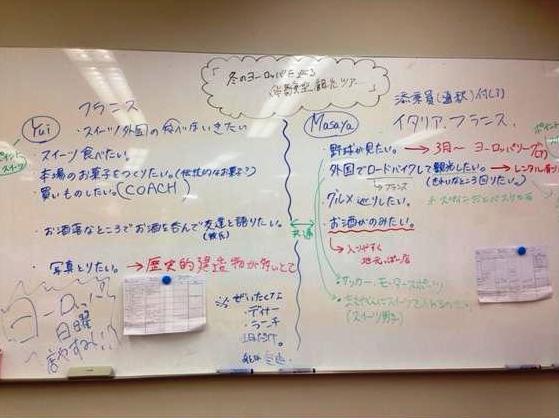 「冬のヨーロッパを
体験型観光ツアー」
添乗員(通訳)付し1
フランス
イタリア、フランス、
Yui
・スイーツ/外国の
いきたい
スイーツ食べたい。
本場のお菓子をつくりたい。(伝統的なお菓子?)
・買いものしたい。(COACH)
・お洒落なところでお酒を呑んで友達と語りたい。
・写真とりたい。→歴史的建造物が多いとこ
ヨーロッパ
日曜
※ぜいたくすな
・ディナー
・ランチ
1日だけ。
Masaya
・野球が見たい。→3月〜 ヨーロッパリーグ
・外国でロードバイクして観光したい。→レンタル
フランス
(きれいなところ回りたい。)
・グルメ巡りしたい。
・お酒がのみたい。
→入りやすく
地元っぽい店
共通
・サッカー・モータースポーツ
(スイーツ男子)
スイーツ